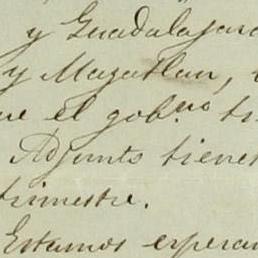 y Guadalajara
y Mazatlan,
el gob.no
Adjunto tienes
trimestre.
Estamos esperan